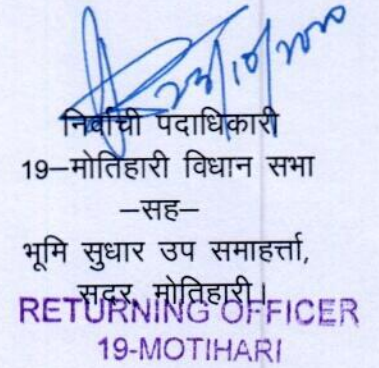 23/10/2020
निर्वाची पदाधिकारी
19–मोतिहारी विधान सभा
–सह–
भूमि सुधार उप समाहर्त्ता,
सदर, मोतिहारी।
RETURNING OFFICER
19-MOTIHARI